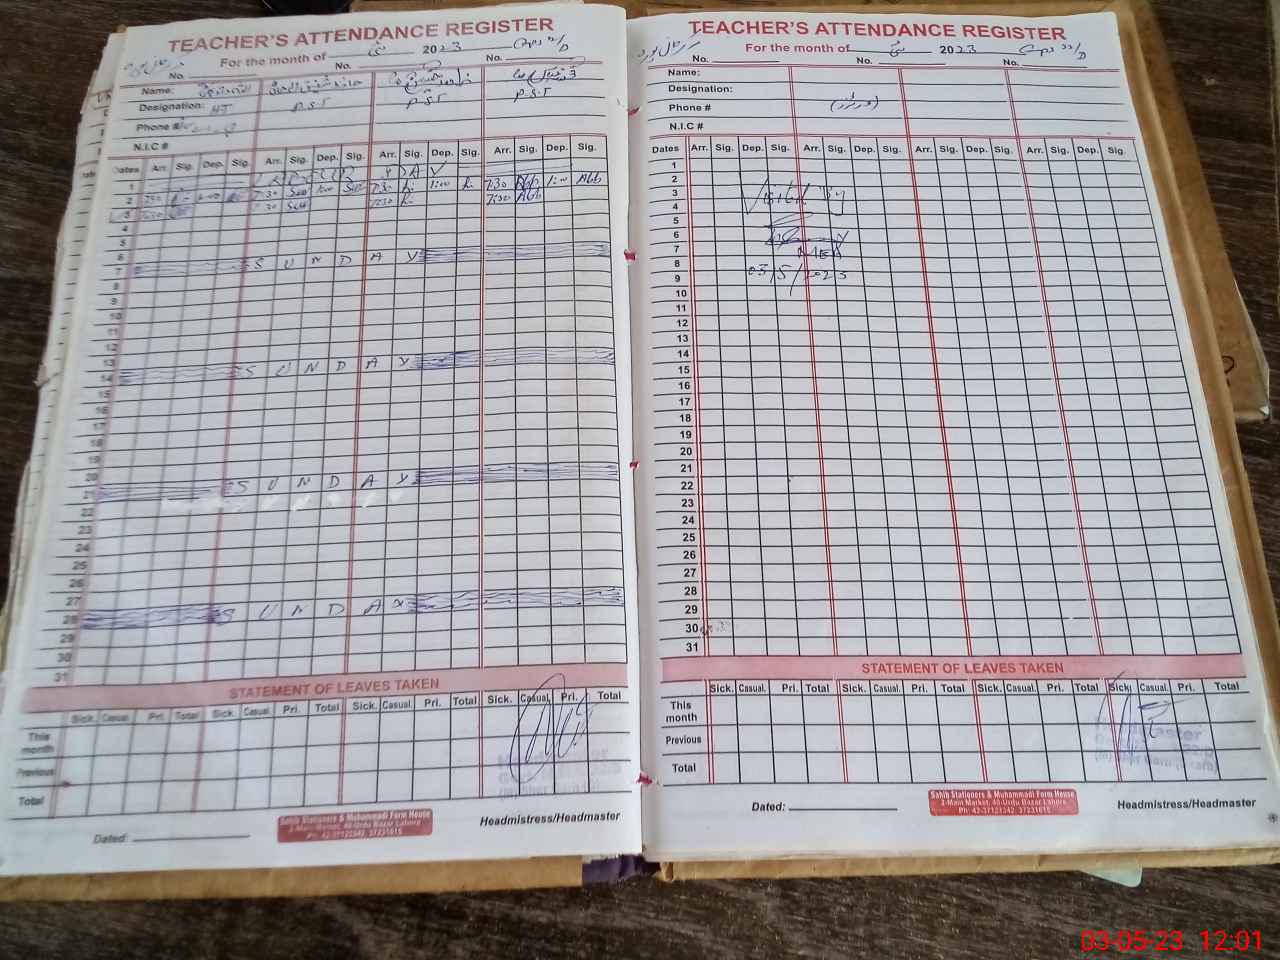 TEACHER'S ATTENDANCE REGISTER
For the month of مئی 2023 GPS 32/D
No. No. No.
Name:
Designation: HT P.S.T P.S.T P.S.T
Phone #
N.I.C #
Dates Arr. Sig. Dep. Sig. Arr. Sig. Dep. Sig. Arr. Sig. Dep. Sig. Arr. Sig. Dep. Sig.
1
2 7:30 1:00 7:30 1:00 7:30 Abb 1:00 Abb
3 7:30 7:30 7:30 7:30 Abb
4
5
6
7 S U N D A Y
8
9
10
11
12
13
14 S U N D A Y
15
16
17
18
19
20
21 S U N D A Y
22
23
24
25
26
27
28 S U N D A Y
29
30
31
STATEMENT OF LEAVES TAKEN
Sick. Casual. Pri. Total Sick. Casual. Pri. Total Sick. Casual. Pri. Total Sick. Casual. Pri. Total
This month
Previous
Total
Sahib Stationers & Muhammadi Form House
2-Main Market, 40-Urdu Bazar Lahore
Ph: 42-37122342, 37231615
Dated:
Headmistress/Headmaster
TEACHER'S ATTENDANCE REGISTER
For the month of مئی 2023 GPS 32/D
No. No. No.
Name:
Designation:
Phone #
N.I.C #
Dates Arr. Sig. Dep. Sig. Arr. Sig. Dep. Sig. Arr. Sig. Dep. Sig. Arr. Sig. Dep. Sig.
1
2
3 Visited by
4
5
6
7 MEA
8
9 03/5/2023
10
11
12
13
14
15
16
17
18
19
20
21
22
23
24
25
26
27
28
29
30
31
STATEMENT OF LEAVES TAKEN
Sick. Casual. Pri. Total Sick. Casual. Pri. Total Sick. Casual. Pri. Total Sick. Casual. Pri. Total
This month
Previous
Total
Dated:
Sahib Stationers & Muhammadi Form House
2-Main Market, 40-Urdu Bazar Lahore
Ph: 42-37122342, 37231615
Headmistress/Headmaster
03-05-23 12:01